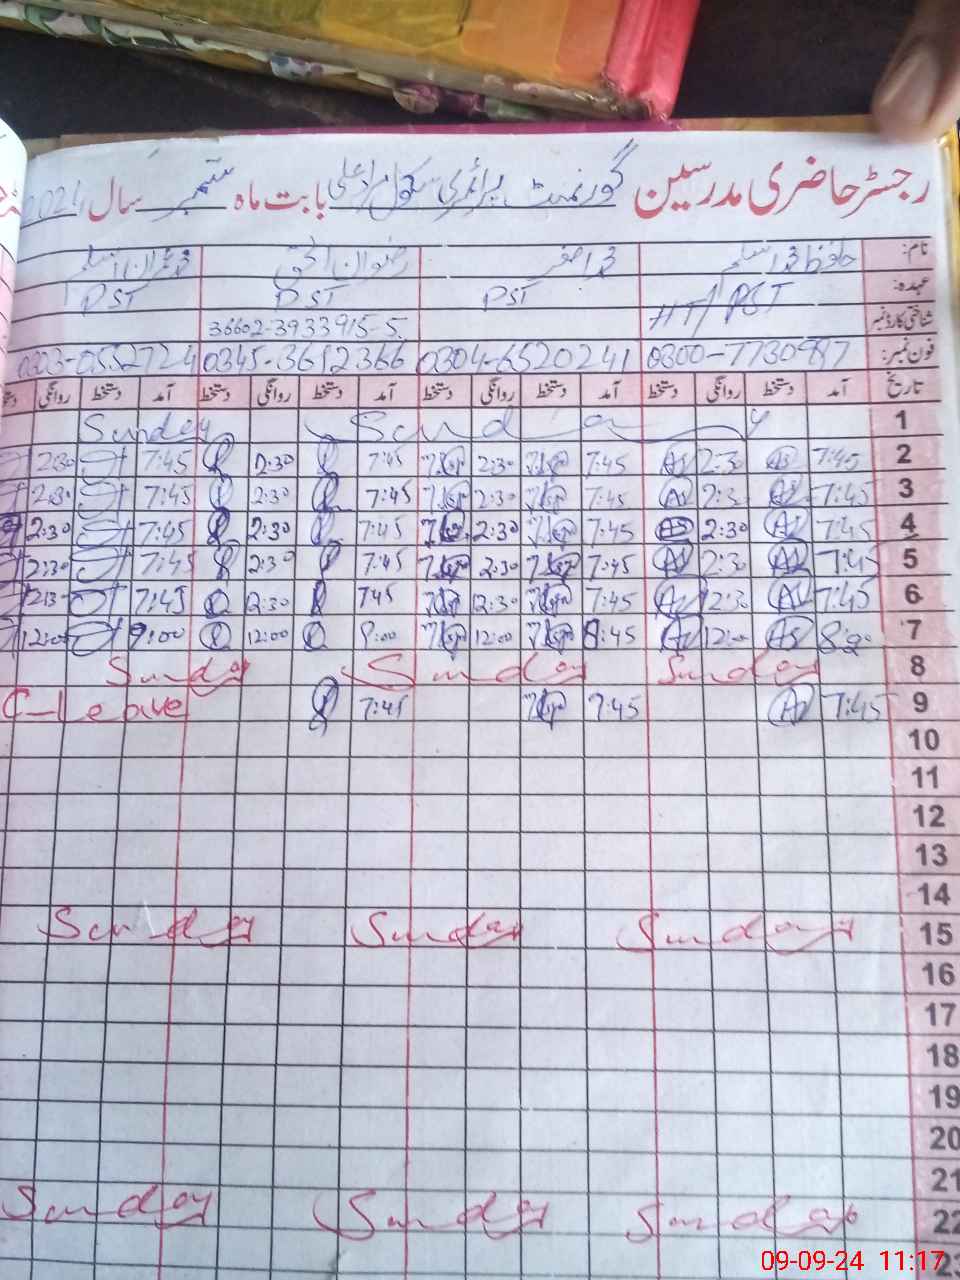 رجسٹر حاضری مدرسین گورنمنٹ پرائمری سکول مراد علی بابت ماہ ستمبر سال 2024
نام: حافظ محمد اسلم
عہدہ: HT/PST PST PST PST
شناختی کارڈ نمبر 36602-3933915-5
فون نمبر: 0304-6520241 0345-3612366 0323-0552724
تاریخ آمد دستخط روانگی دستخط آمد دستخط روانگی دستخط آمد دستخط روانگی دستخط آمد دستخط روانگی
1 Sunday Sunday
2 7:45 2:30 7:45 2:30 7:45 2:30 7:45 2:30
3 7:45 2:3 7:45 2:30 7:45 2:30 7:45 2:30
4 7:45 2:30 7:45 2:30 7:45 2:30 7:45 2:30
5 7:45 2:3 7:45 2:30 7:45 2:30 7:45 2:30
6 7:45 2:3 7:45 2:30 7:45 2:30 7:45 2:3
7 12:00 8:45 12:00 9:00 12:00 9:00 12:00
8 Sunday Sunday Sunday
9 7:45 7:45 7:45 C-Leave
10
11
12
13
14
15 Sunday Sunday Sunday
16
17
18
19
20
21
22 Sunday Sunday Sunday
09-09-24 11:17